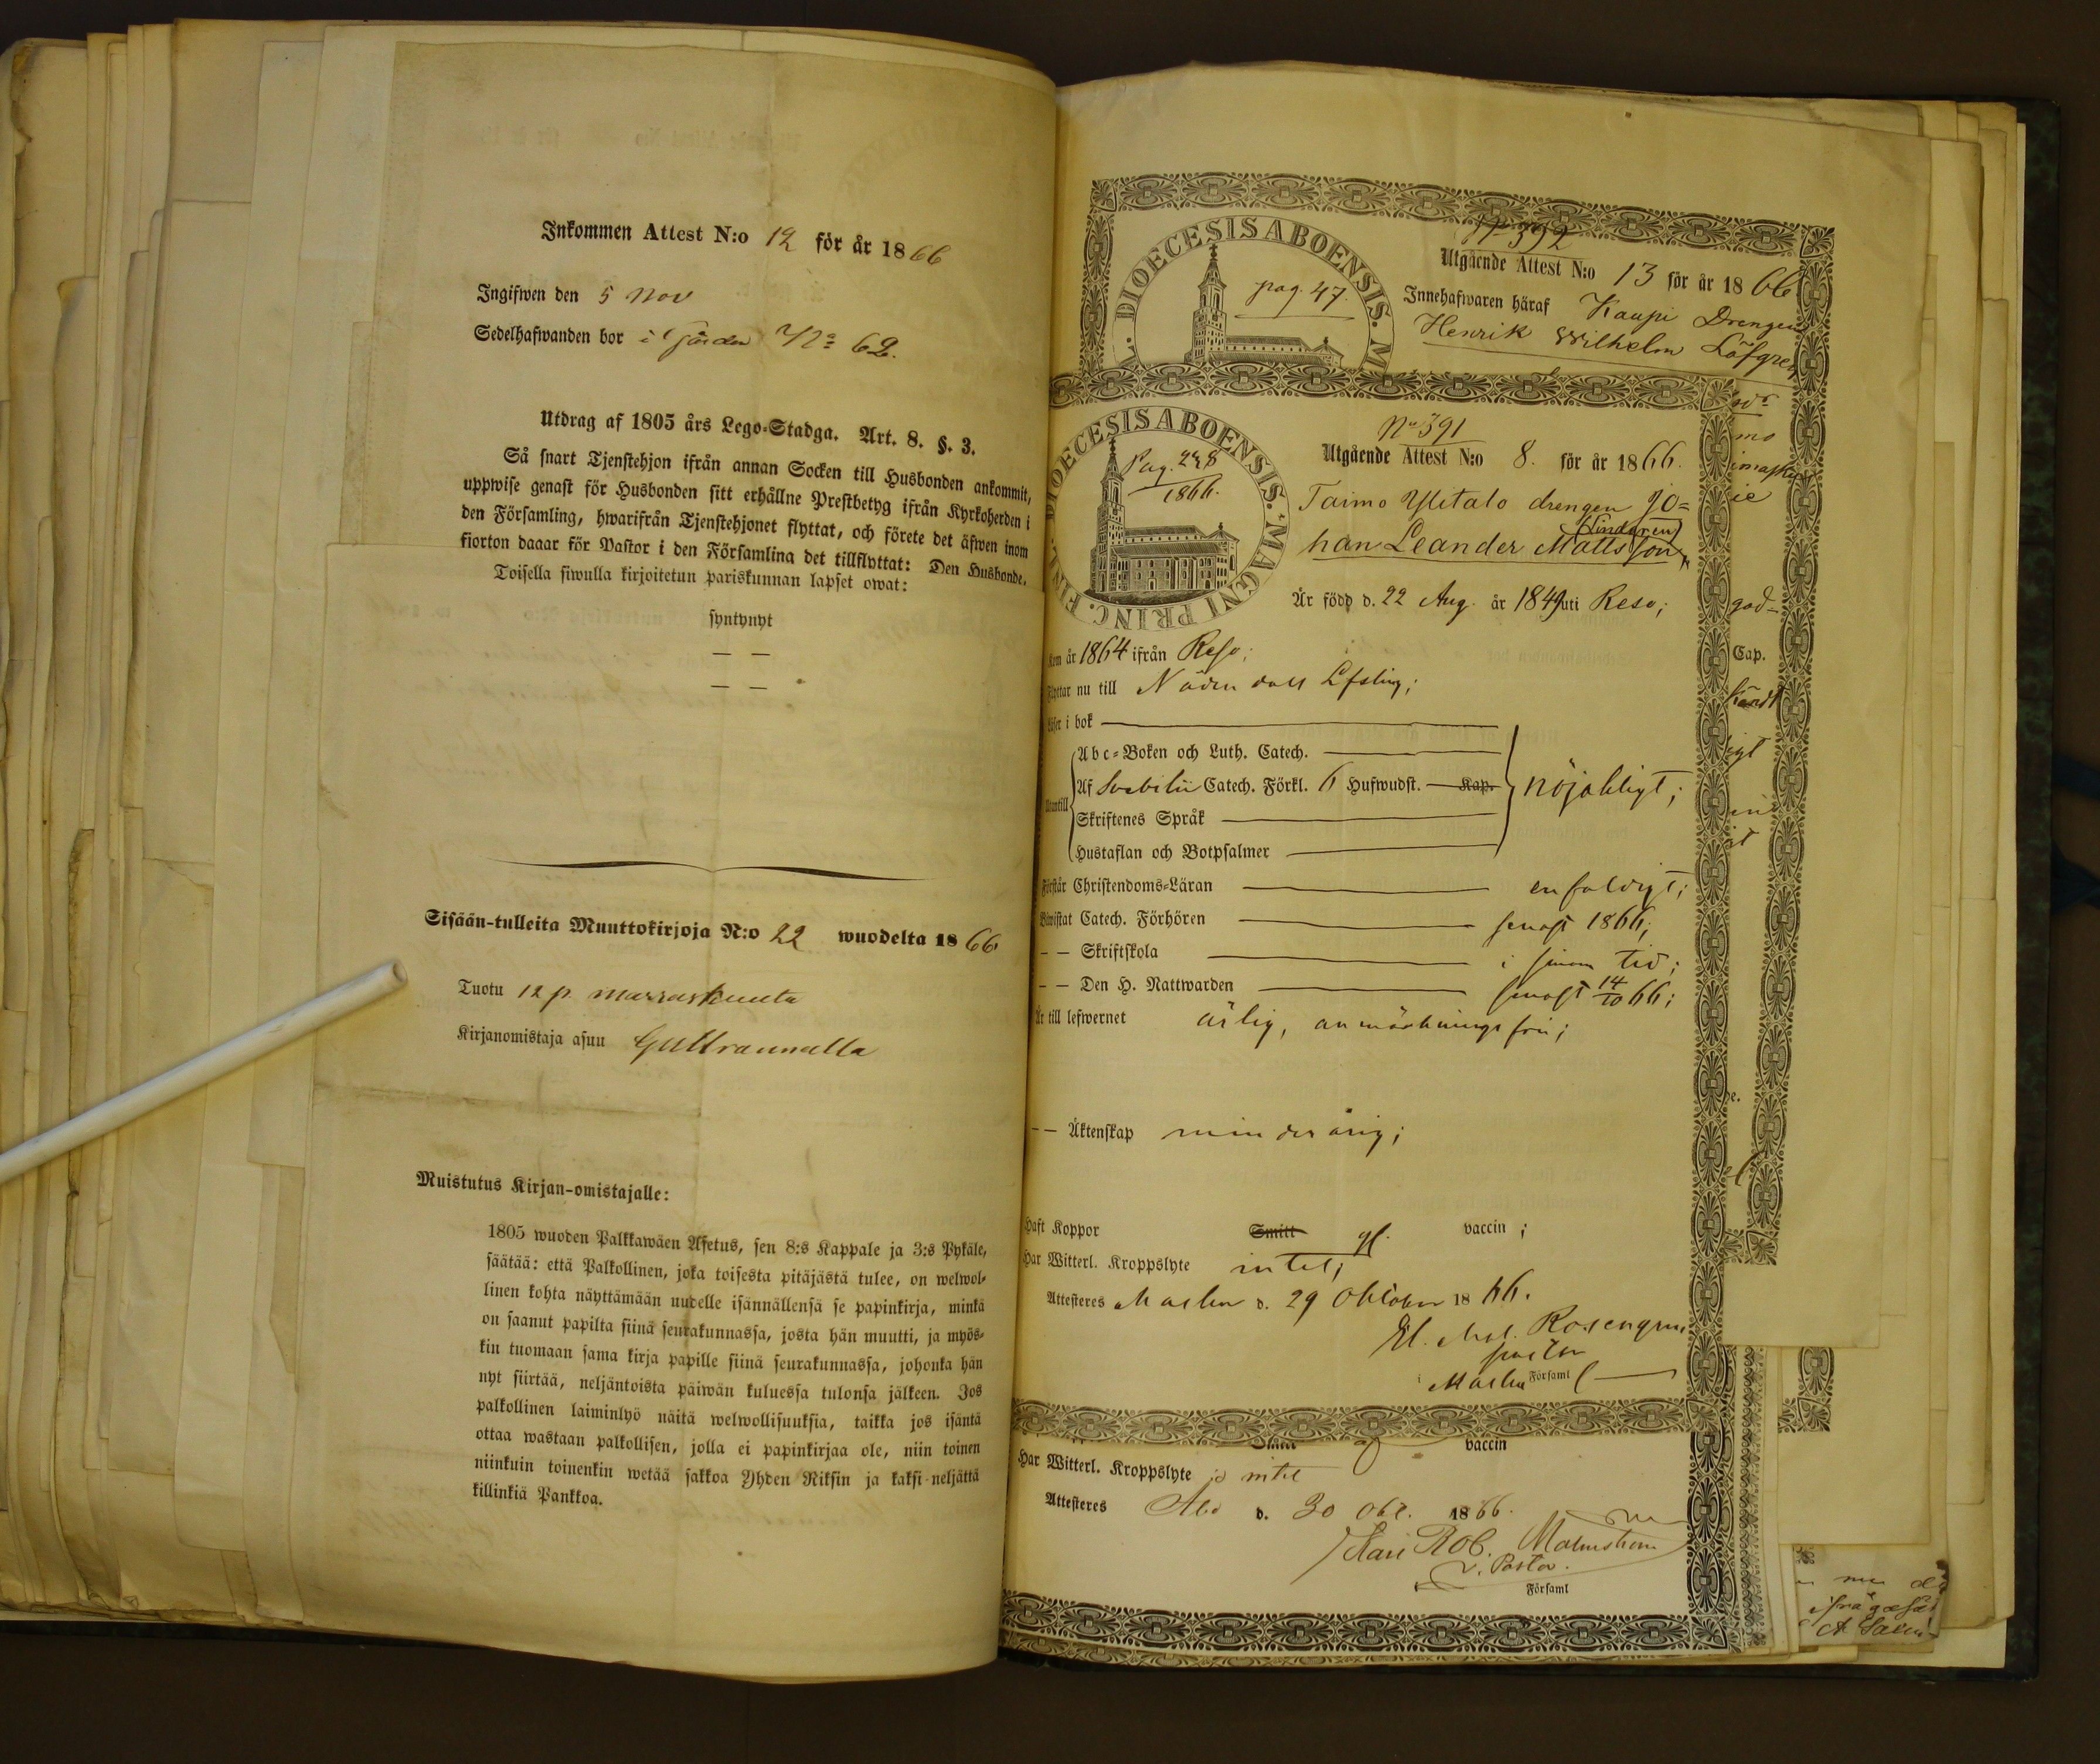 Inkommen Attest N:o 12 för år 1866
Ingifwen den 5 Nov
Sedelhafwanden bor i Gården No 62.
Utdrag af 1805 års Lego-Stadga. Art. 8. §. 3.
Så snart Tjenstehjon ifrån annan Socken till Husbonden ankommit,
uppwise genast för Husbonden sitt erhållne Prestbetyg ifrån Kyrkoherden i
den Församling, hwarifrån Tjenstehjonet flyttat, och förete det äfwen inom
fiorton dagar för Pastor i den Församling det tillflyttat: Den Husbonde,
Toisella siwulla kirjoitetun pariskunnan lapset owat:
syntynyt
— —
— —
Sisään-tulleita Muuttokirjoja N:o 22 wuodelta 1866
Tuotu 12 p. marraskuuta
Kirjanomistaja asuu Gullrannalla
Muistutus Kirjan-omistajalle:
1805 wuoden Palkkawäen Asetus, sen 8:s Kappale ja 3:s Pykäle,
säätää: että Palkollinen, joka toisesta pitäjästä tulee, on welwol-
linen kohta näyttämään uudelle isännällensä se papinkirja, minkä
on saanut papilta siinä seurakunnassa, josta hän muutti, ja myös-
kin tuomaan sama kirja papille siinä seurakunnassa, johonka hän
nyt siirtää, neljäntoista päiwän kuluessa tulonsa jälkeen. Jos
palkollinen laiminlyö näitä welwollisuuksia, taikka jos isäntä
ottaa wastaan palkollisen, jolla ei papinkirjaa ole, niin toinen
niinkuin toinenkin wetää sakkoa Yhden Riksin ja kaksi-neljättä
killinkiä Pankkoa.
DIOECESIS ABOENSIS. M
pag. 47.
No 392
Utgående Attest N:o 13 för år 1866
Innehafwaren häraf Kaupi Drengen
Henrik Wilhelm Löfgren
DIOECESIS ABOENSIS. MAGNI PRINC. FINL.
Pag. 228
1866.
No 391
Utgående Attest N:o 8. för år 1866.
Taimo Ylitalo drengen Jo=
(Lindgren)
han Leander Mattsson,
Är född d. 22 Aug. år 1849 uti Reso;
Kom år 1864 ifrån Reso;
Flyttar nu till Nådendals Lfsling;
Läser i bok
Abc-Boken och Luth. Catech.
Utantill Af Svebilii Catech. Förkl. 6 Hufwudst. Kap. nöjaktigt;
Skriftenes Språk
Hustaflan och Botpsalmer
Förstår Christendoms-Läran enfaldigt;
Biwistat Catech. Förhören senast 1866;
— — Skriftskola i sinom tid;
— — Den H. Nattwarden senast 14/10 66;
Är till lefwernet ärlig, anmärkningsfri;
— — Äktenskap minderårig;
Haft Koppor Smitt gl. vaccin;
Har Witterl. Kroppslyte intet;
Attesteres Masku d. 29 Oktober 1866.
Rosengren
pastor
i Masku Församl
vaccin
Har Witterl. Kroppslyte intet
Attesteres Åbo d. 30 Okt. 1866.
Karl Rob. Malmström
v. Pastor.
Församl
Cap.